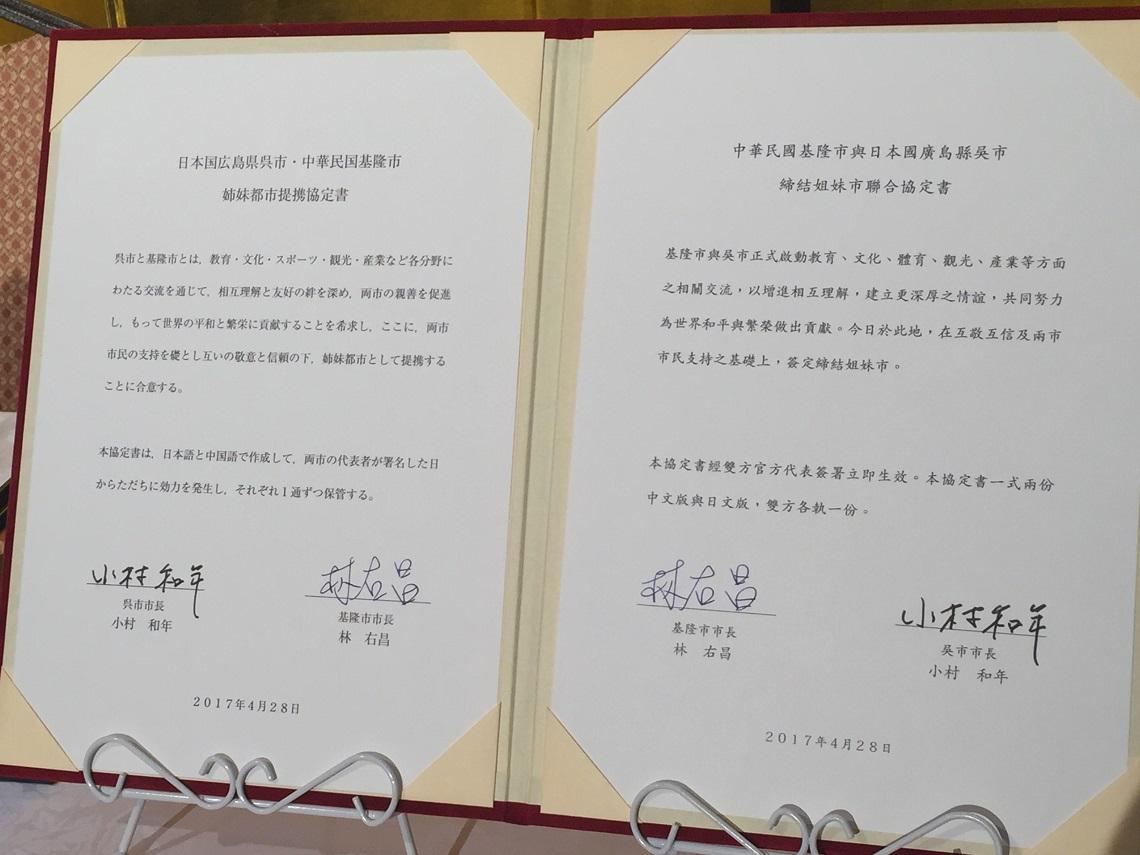 日本国広島県呉市・中華民国基隆市
姉妹都市提携協定書
呉市と基隆市とは，教育・文化・スポーツ・観光・産業など各分野に
わたる交流を通じて，相互理解と友好の絆を深め，両市の親善を促進
し，もって世界の平和と繁栄に貢献することを希求し，ここに，両市
市民の支持を礎とし互いの敬意と信頼の下，姉妹都市として提携する
ことに合意する。
本協定書は，日本語と中国語で作成して，両市の代表者が署名した日
からただちに効力を発生し，それぞれ１通ずつ保管する。
小村和年
林右昌
呉市市長
基隆市市長
小村　和年
林　右昌
２０１７年４月２８日
中華民國基隆市與日本國廣島縣吳市
締結姐妹市聯合協定書
基隆市與吳市正式啟動教育、文化、體育、觀光、產業等方面
之相關交流，以增進相互理解，建立更深厚之情誼，共同努力
為世界和平與繁榮做出貢獻。今日於此地，在互敬互信及兩市
市民支持之基礎上，簽定締結姐妹市。
本協定書經雙方官方代表簽署立即生效。本協定書一式兩份
中文版與日文版，雙方各執一份。
林右昌
小村和年
基隆市市長
吳市市長
林　右昌
小村　和年
２０１７年４月２８日